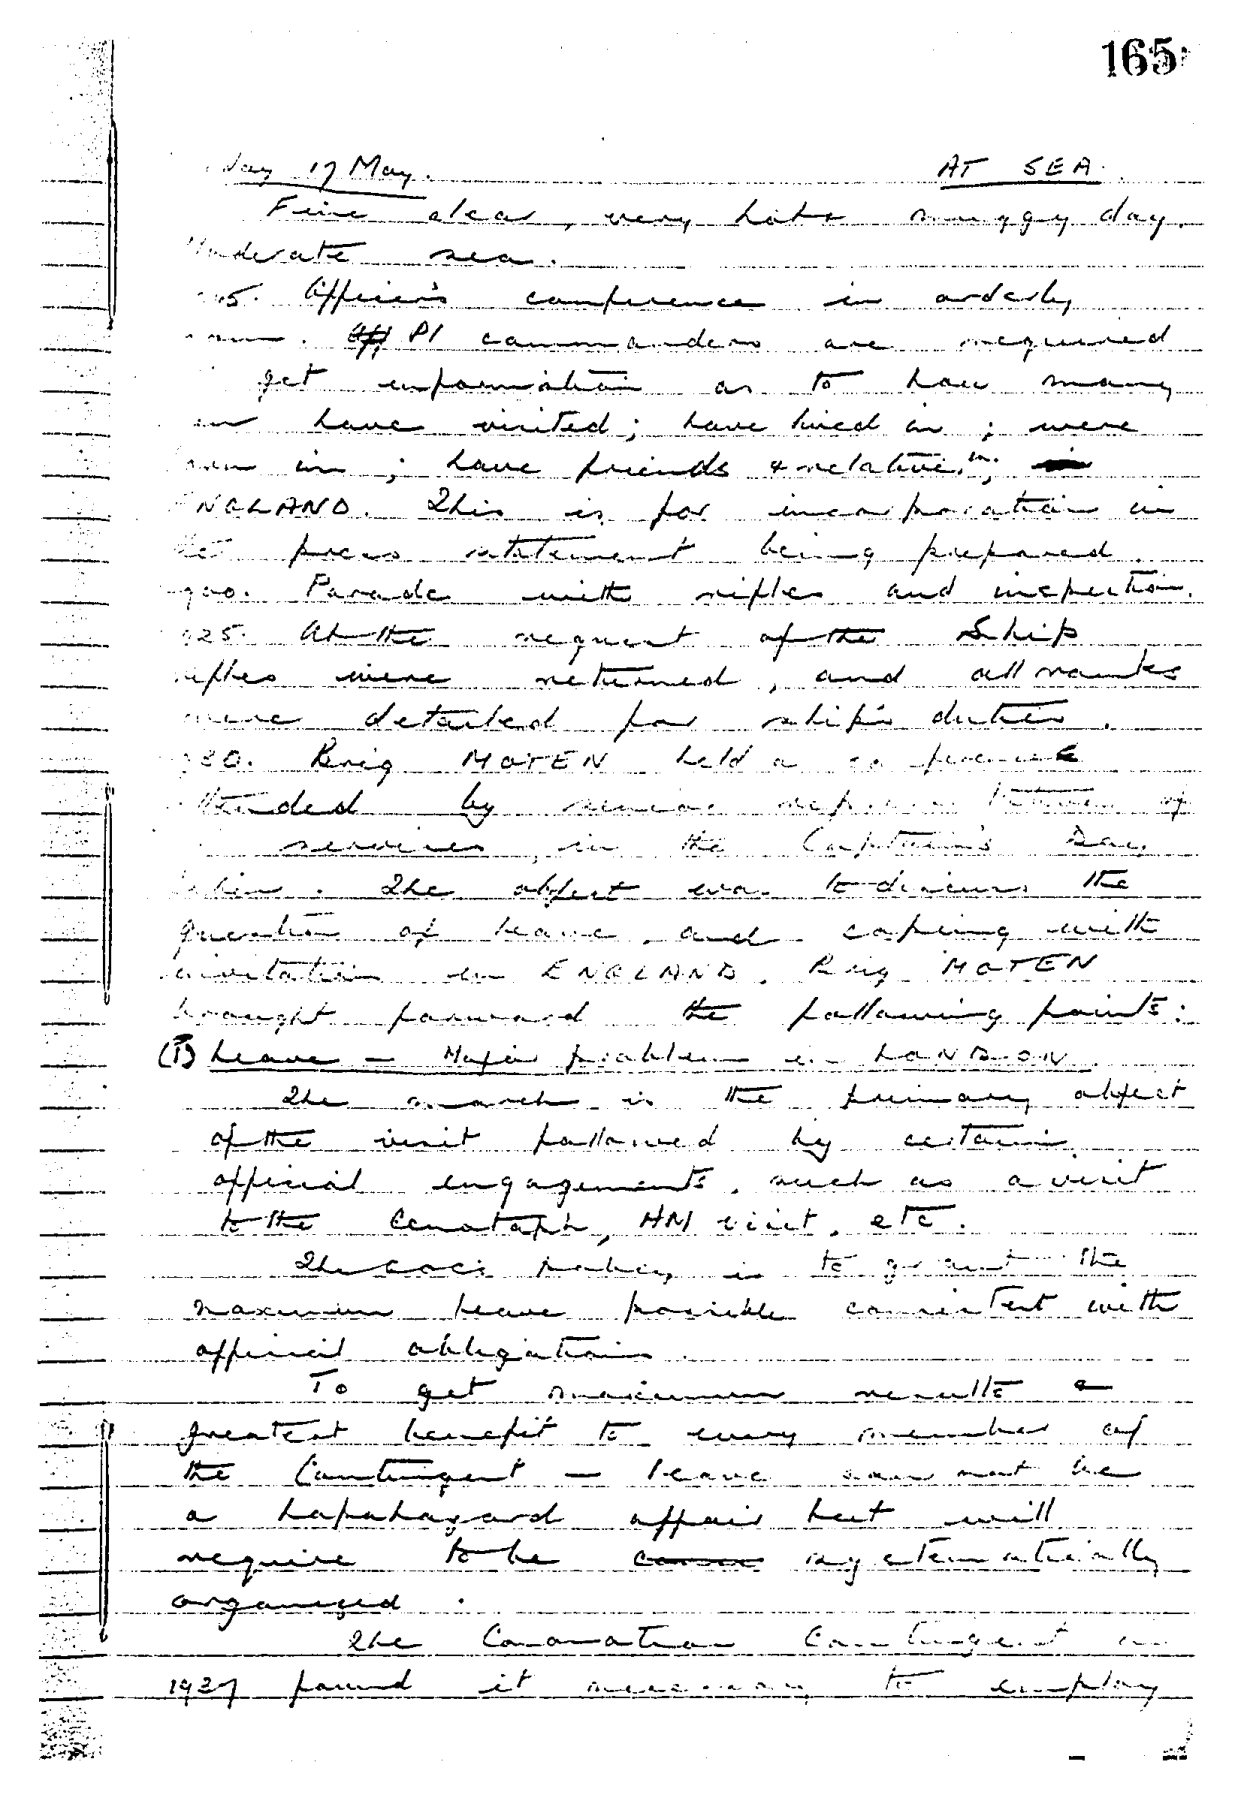 165
day 17 May. AT SEA.
Fine clear, very hot & muggy day.
Moderate sea.
5. Officer's conference in orderly
Pl commanders are required
get information as to how many
have visited; have lived in; were
in; have friends & relatives in;
ENGLAND. This is for incorporation in
press statement being prepared.
900. Parade with rifles and inspection.
925. At the request of the Ship
rifles were returned, and all ranks
were detailed for ship's duties.
930. Brig MOTEN held a conference
attended by senior representatives of
services, in the Captain's Day
Cabin. The object was to discuss the
question of leave and coping with
invitations in ENGLAND. Brig MOTEN
brought forward the following points:
(1) Leave – Major problem in LONDON.
The march is the primary object
of the visit followed by certain
official engagements, such as a visit
to the Cenotaph, HM visit, etc.
The policy is to grant the
maximum leave possible consistent with
official obligations.
To get maximum results &
greatest benefit to every member of
the Contingent – leave can not be
a haphazard affair but will
require to be systematically
organized.
The Coronation Contingent in
1937 found it necessary to employ